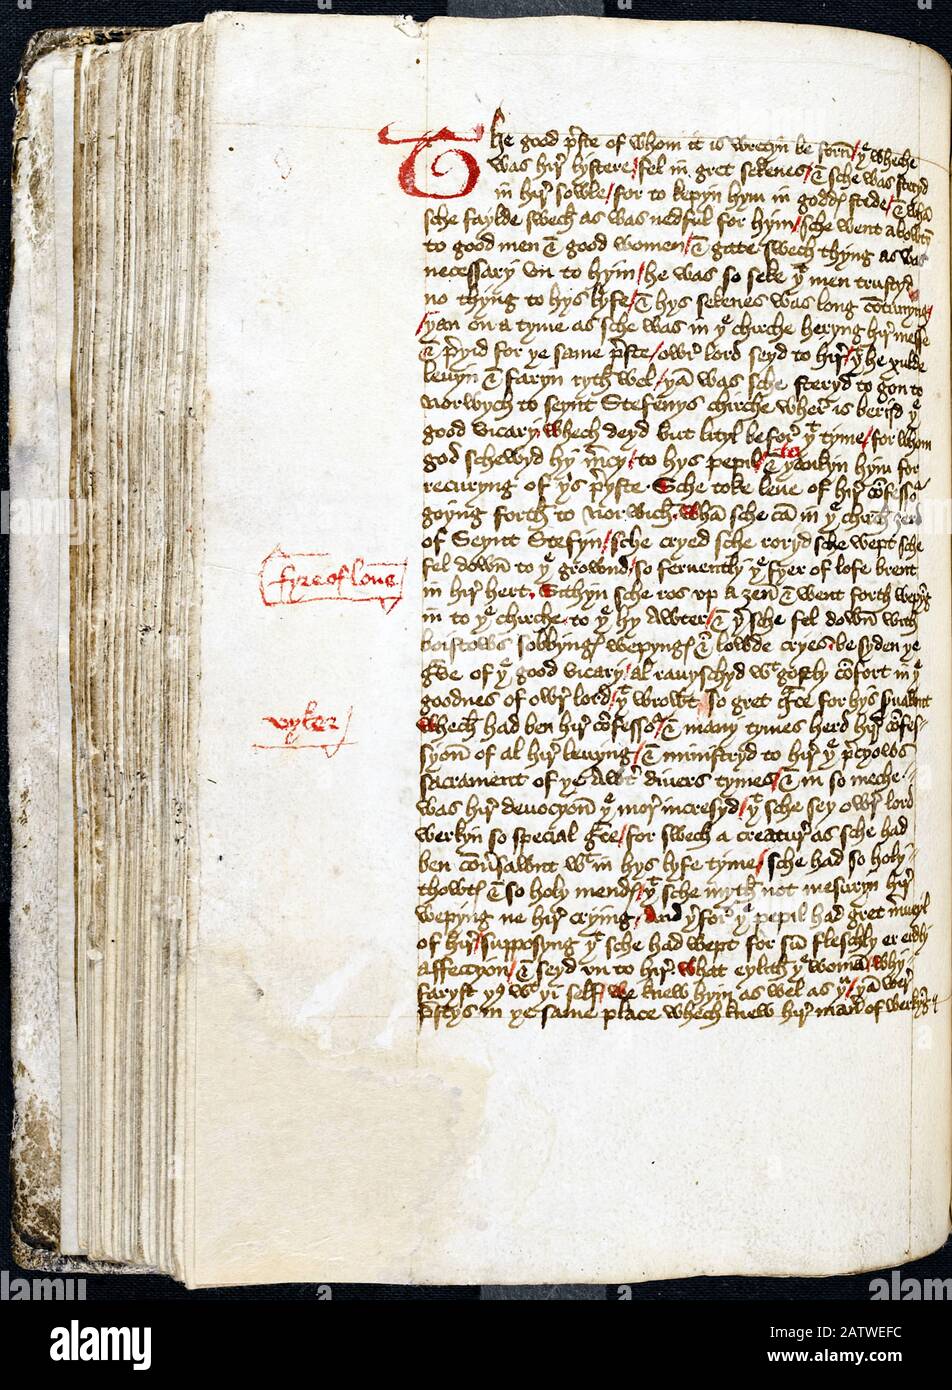 The good p̄ste of whom it is wretyn be forn / yͤ wheche
was hir̉ lystere / fel in gret sekenes / & sche was steryd
in hir̉ sowle / for to kepyn hym in goddys stede / & whā
sche faylde swech as was nedful for hym / sche went abowtyn
to good men & good women / & gate swech thyng as was
necessary vn to hym / he was so seke yͭ men trustyd
no thyng to hys lyfe / & hys sekenes was long cōtinuyng /
/ yan on a tyme as sche was in yͤ chirche heryng hir̉ messe
& p̄yid for ye same p̄ste / owr̉ lord seyd to hir̉ / yͭ he xulde
leuyn & faryn ryth wel / yā was sche steryd to gon to
Norwych to seynt Stefenys chirche wher̉ is beriid yͤ
good vicary / whech deyd but lityl befor̉ yͭ tyme / for whom
god schewyd hy m̄cy / to hys pepil / & to yankyn hym for
recuryng of yͥs p̄yste . Sche toke leue of hir̉ cōfesso
goyng forth to Norwich . whā sche cā in yͤ chirch zerd
of Seynt Stefyn / sche cryed sche roryd sche wept sche
fel down̄ to yͤ grownd / so feruently yͤ fyer of lofe brent
in hir̉ hert . Sithyn sche ros vp a zen & went forth wepyng
in to yͤ chirche to yͤ hy Awter / & yͤ sche fel down̄ with
boistows sobbyngys wepyngys & lowde cryes . be syden ye
gͣue of yͤ good vicary / al rauyschyd wͭ gostly cōfort in yͤ
goodnes of owr̉ lord / yͭ wrowt so gret gͣce for hys s̄uawnt
whech had ben hir̉ cōfesso / & many tymes herd hir̉ cōfes-
syon̄ of al hir̉ leuyng / & ministryd to hir̉ yͤ p̄cyows
sacrament of ye Awter̉ diuers tymes / & in so meche
was hir̉ deuocyon̄ yͤ mor̉ incresyd / yͭ sche sey owr̉ lord
werkyn so special gͣce / for swech a creatur̉ as sche had
ben cōuersawnt wͭ in hys lyfe tyme / sche had so holy
thowtys & so holy mendys / yͭ sche myth not mesuryn hir̉
wepyng ne hir̉ crying . And yͤfor̉ yͤ pepil had gret m̄ueyl
of hir̉ / supposyng yͭ sche had wept for sū fleschly er erdly
affeccyon̄ / & seyd vn to hir̉ . what eylith yͤ womā / why
faryst yͧ wͭ yi self / we knew hym as wel as yͧ / yā wer̉
p̄stys in ye same place whech knew hir̉ maner̉ of werkyng &
fyre of loue
vyker
alamy
Image ID: 2ATWEFC
www.alamy.com